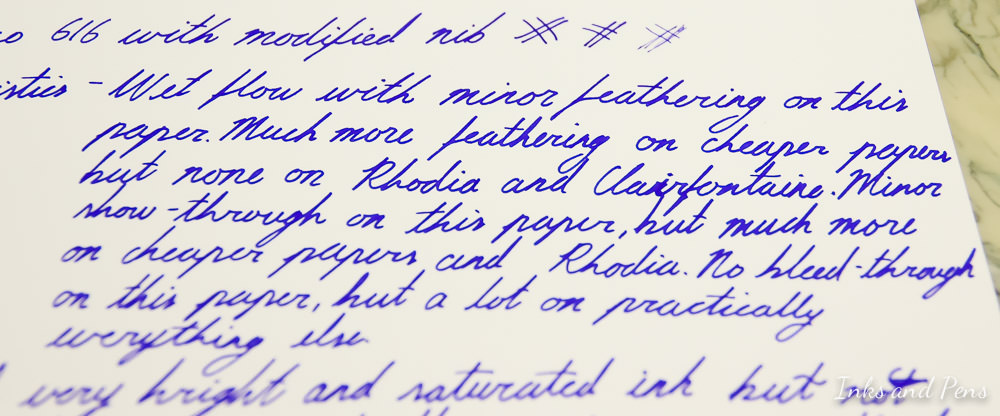 616 with modified nib
- Wet flow with minor feathering on this
paper. Much more feathering on cheaper papers
but none on Rhodia and Clairfontaine. Minor
show-through on this paper, but much more
on cheaper papers and Rhodia. No bleed-through
on this paper, but a lot on practically
everything else
very bright and saturated ink but
Inks and Pens